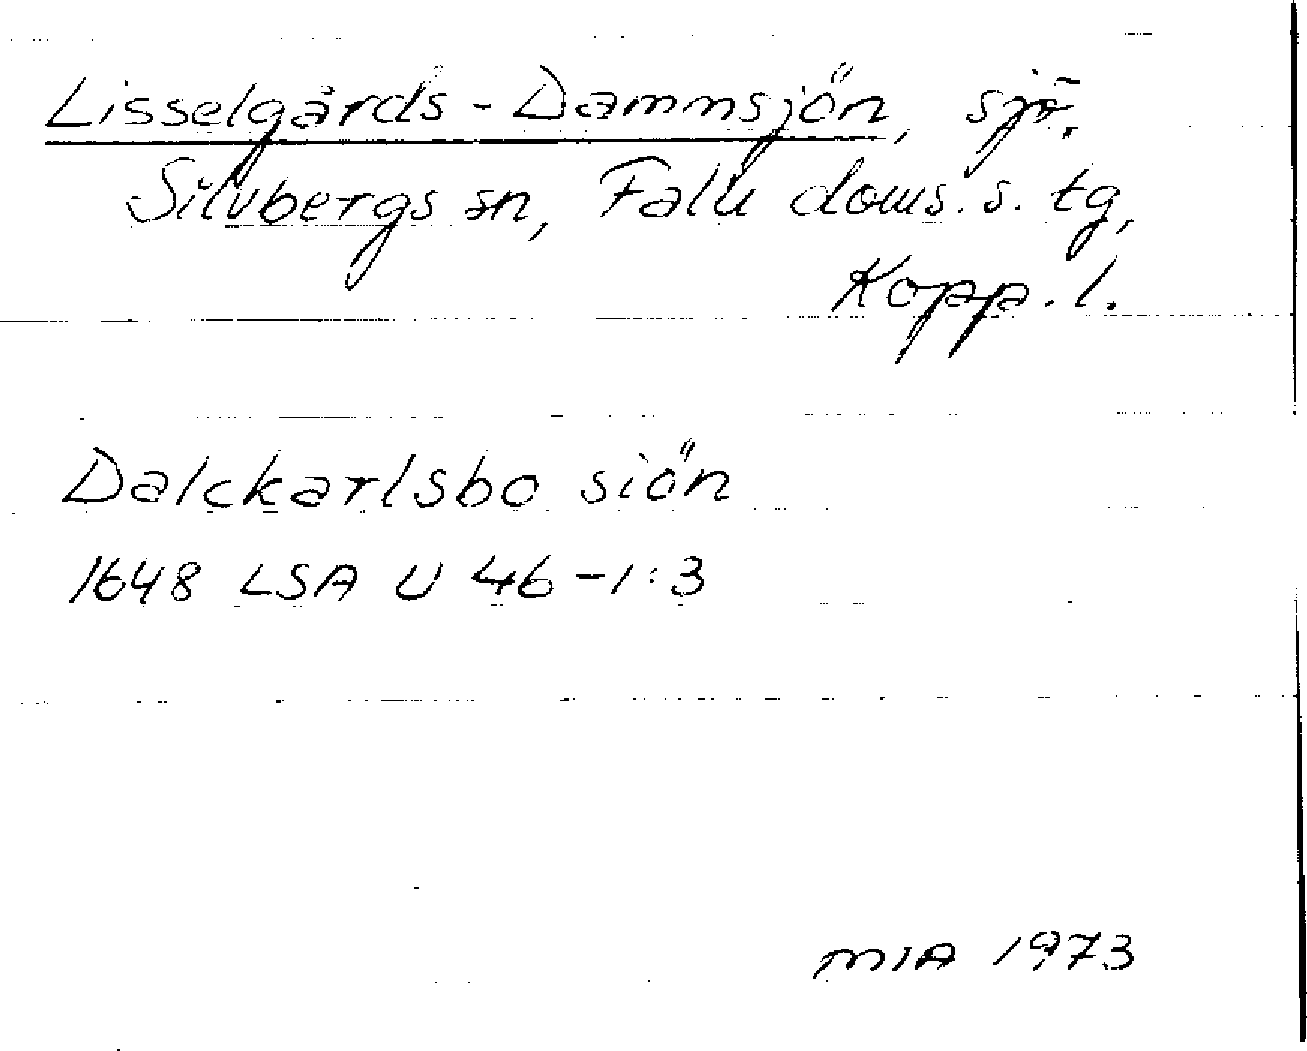 Lisselgårds-Dammsjön, sjö.
Silvbergs sn, Falu doms. s. tg,
Kopp. l.
Dalckarlsbo siön
1648 LSA U 46-1:3
MIA 1973